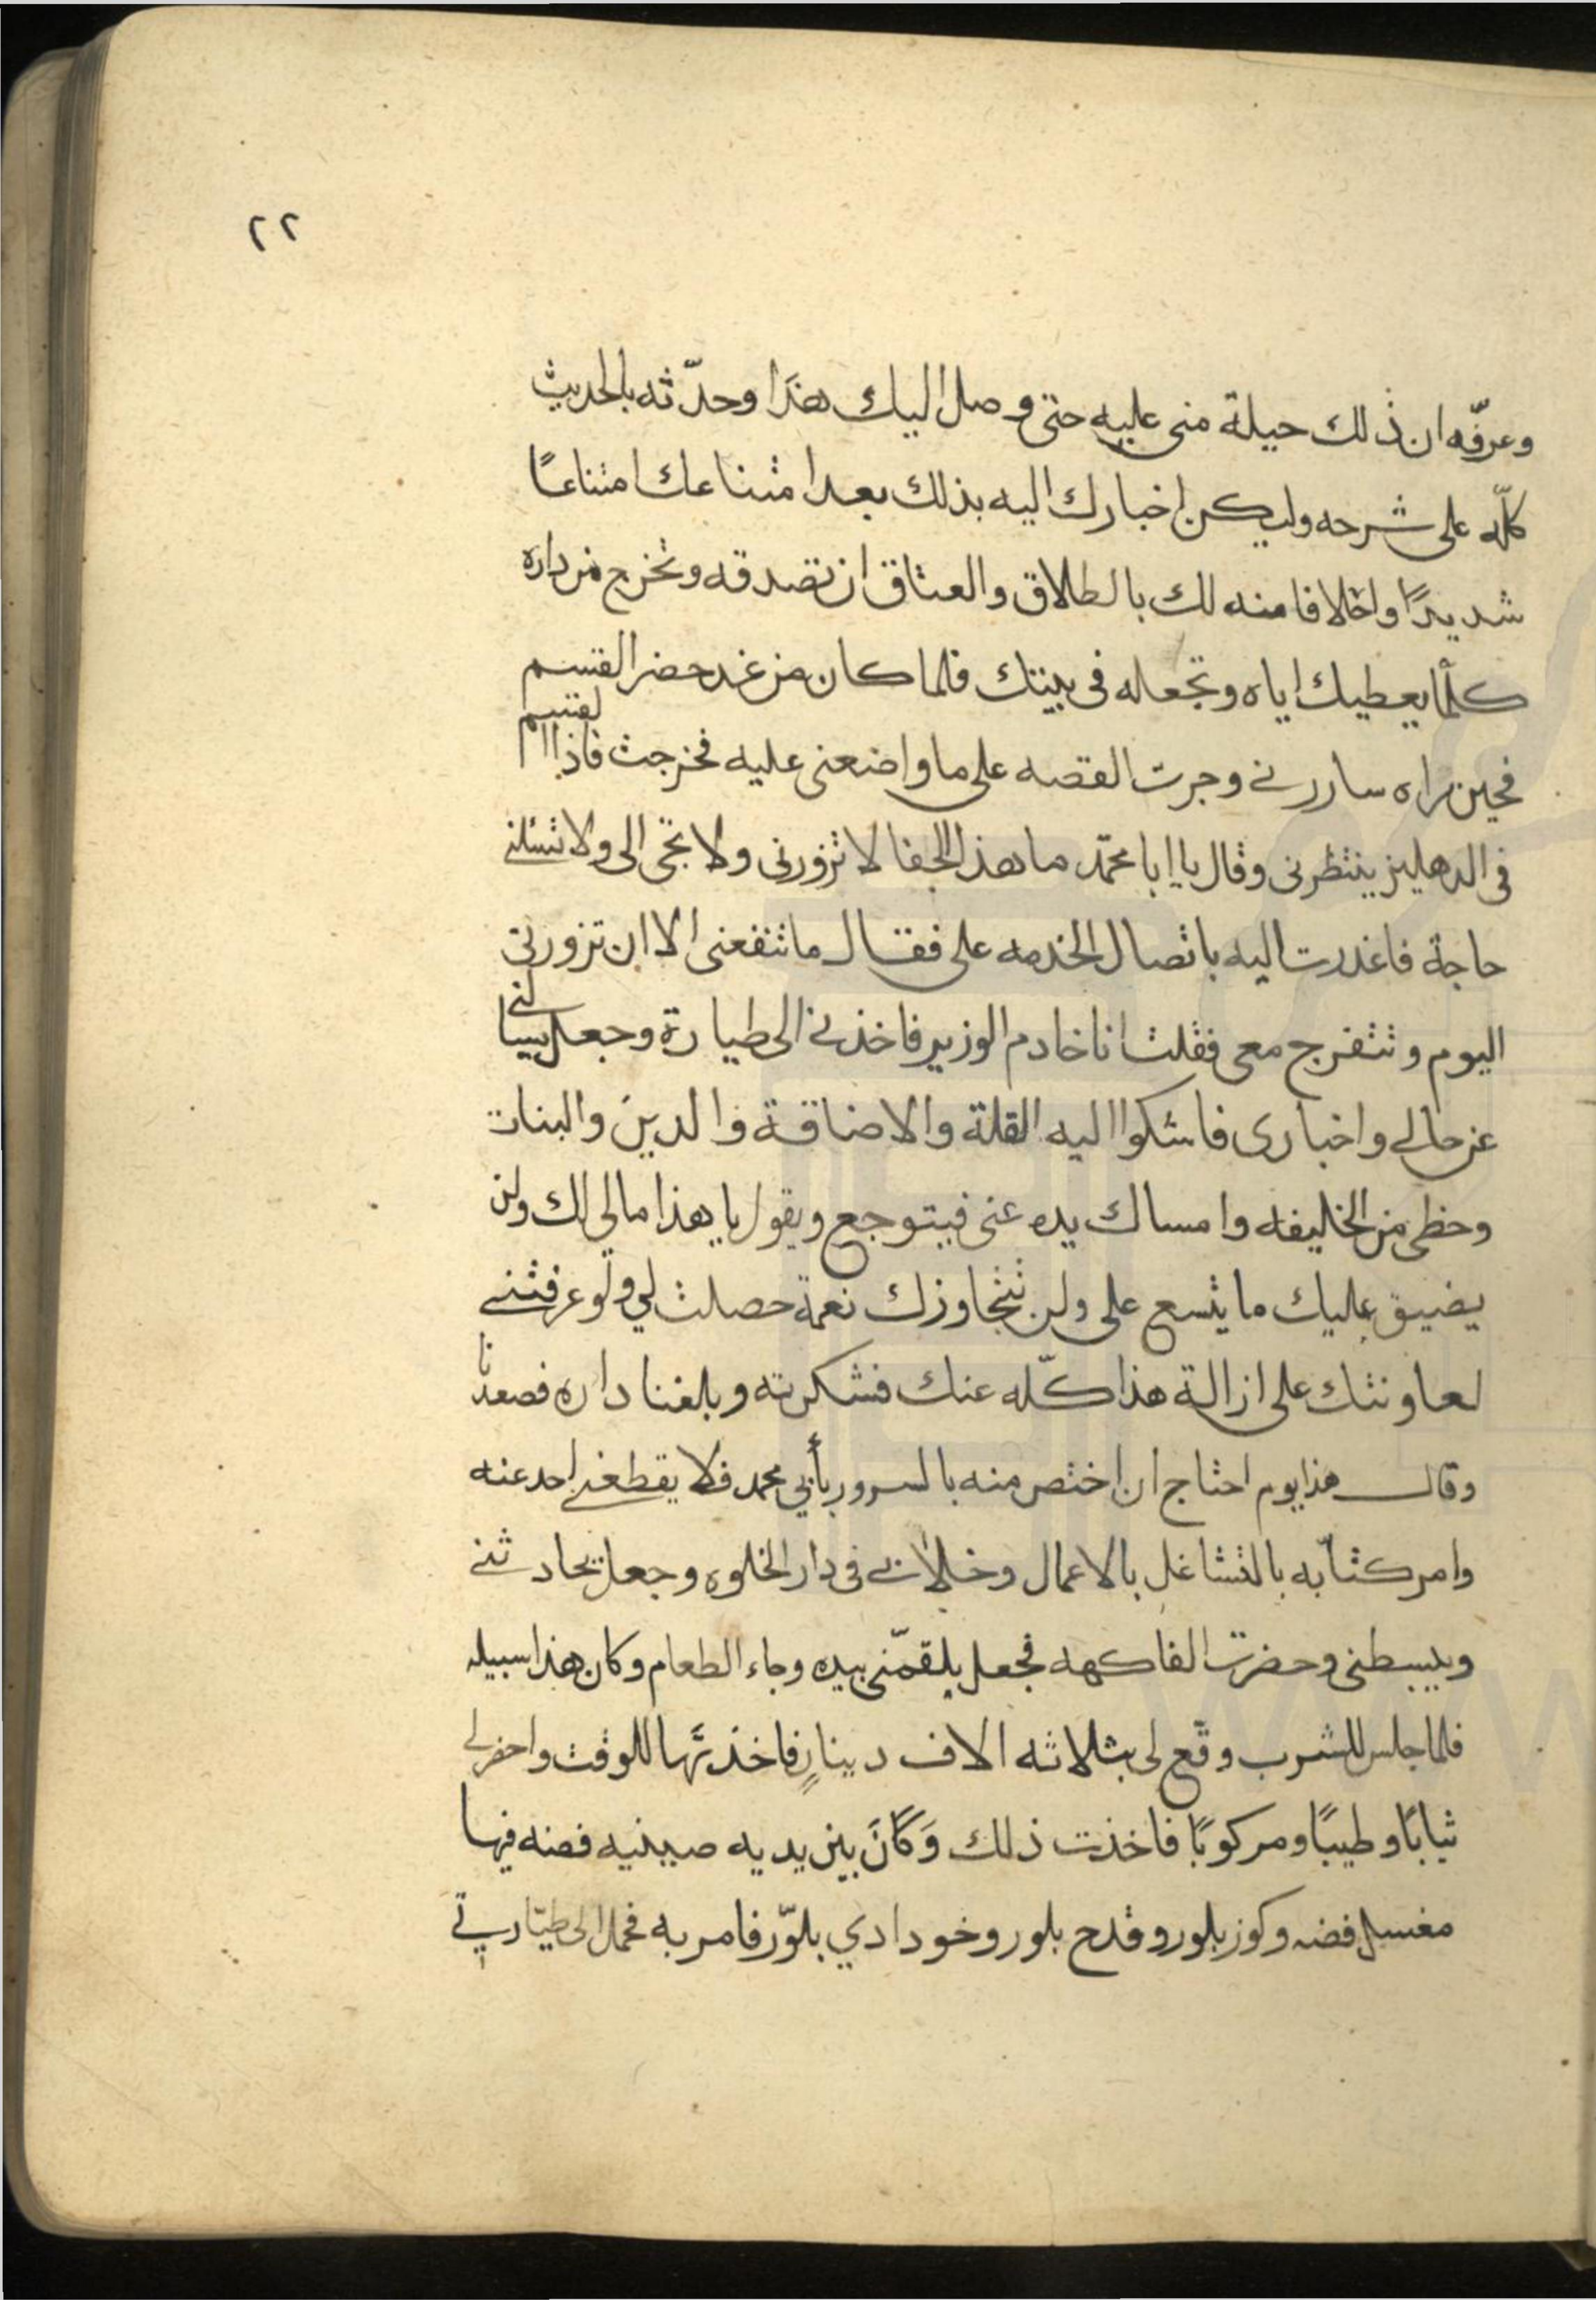 ٢٢
وعرفّه ان ذلك حيلة منى عليه حتى وصل اليك هذا وحدّثه بالحديث
كلّه على شرحه وليكن اخبارك اليه بذلك بعد امتناعك امتناعًا
شديدًا واخلافا منه لك بالطلاق والعتاق ان تصدقه وتخرج من داره
كلّما يعطيك اياه وتجعله فى بيتك فلما كان من غد حضر القسم
فحين راه ساررنے وجرت القصه على ما واضعنى عليه فخرجت فاذا القسم
فى الدهليز ينتظرنى وقال يا ابا محمّد ما هذا الجفا لا تزورنى ولا تجى الى ولا تسئلنے
حاجة فاغدرت اليه باتصال الخدمه على فقال ما تنفعنى الا ان تزورنى
اليوم وتتفرج معى فقلت انا خادم الوزير فاخذنے الى طيارة وجعل يسالنے
عن حالے واخبارى فاشكوا اليه القلة والاضاقة والدين والبنات
وحظى من الخليفه وامساك يده عنى فيتوجع ويقول يا هذا مالى لك ولن
يضيق عليك ما يتسع على ولن تتجاوزك نعمة حصلت لي ولو عرفتنے
لعاونتك على ازالة هذا كلّه عنك فشكرته وبلغنا داره فصعدنا
وقال هذا يوم احتاج ان اختص منه بالسرور بأبي محمد فلا يقطعنے احد عنه
وامر كتابّه بالتشاغل بالاعمال وخلا بے فى دار الخلوه وجعل يحادثنے
ويبسطنى وحضرت الفاكهه فجعل يلقمّنى بيده وجاء الطعام وكان هذا سبيله
فلما جلس للشرب وقّع لى بثلاثه الاف دينارٍ فاخذتها للوقت واحضر لے
ثيابًا وطيبًا ومركوبًا فاخذت ذلك وَكَانَ بين يديه صينيه فضه فيها
مغسل فضه وكوز بلور وقدح بلور وخودادي بلّور فامر به فحمل الى طيّارتے